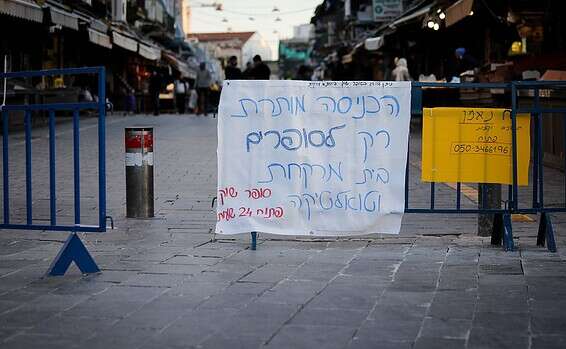 הכניסה מותרת
רק לסופרים
בית מרקחת
וטואלטיקה
סופר שוק
פתוח 24 שעות
050-3466196